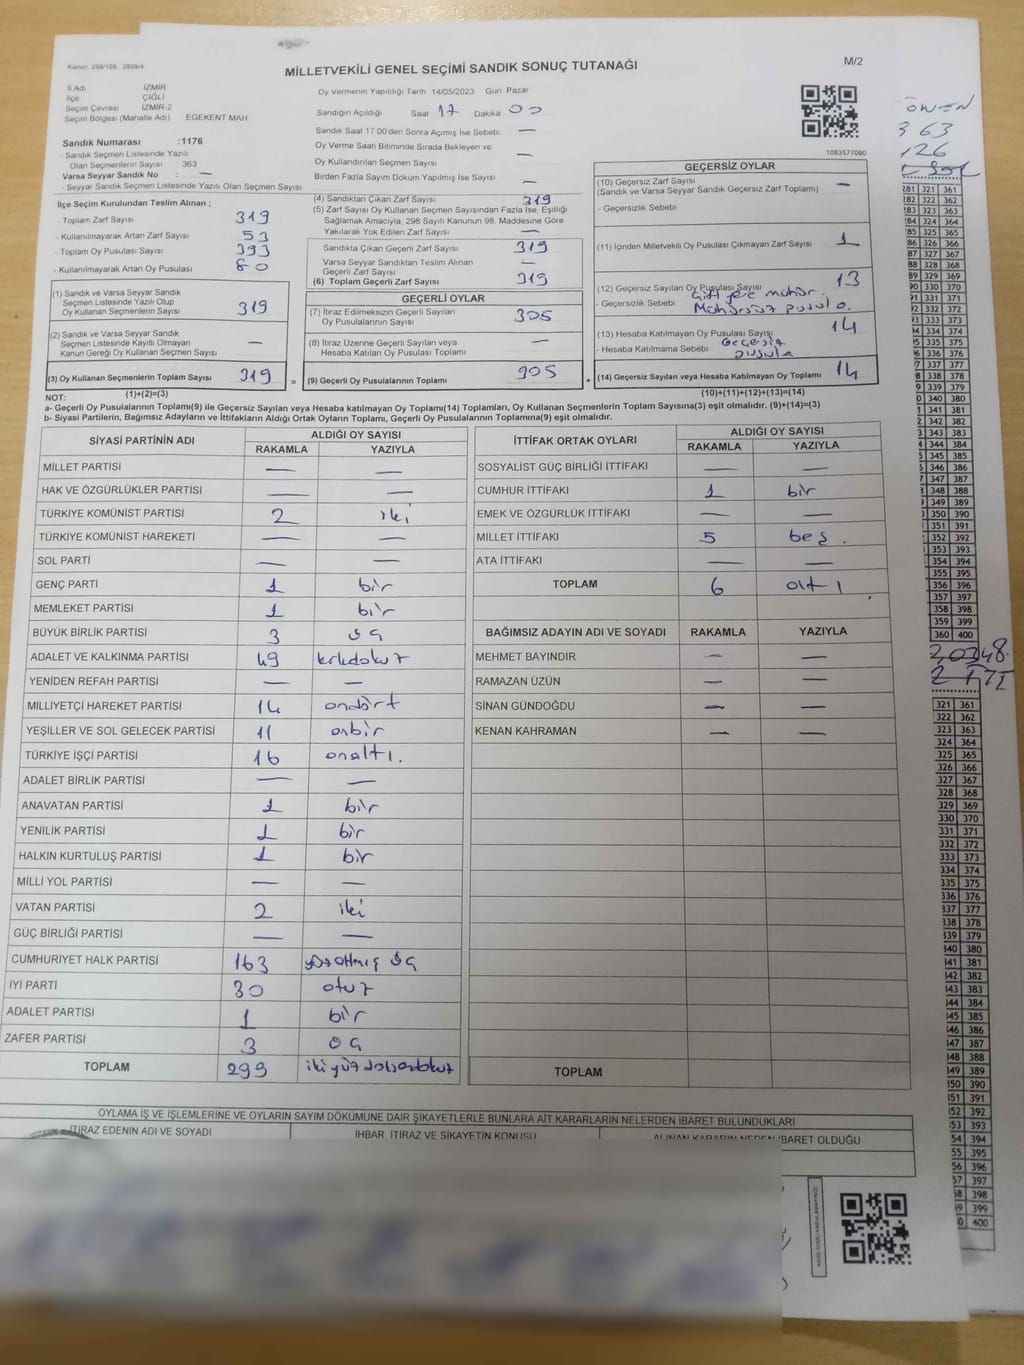 Kanun: 298/105 , 2839/4
MİLLETVEKİLİ GENEL SEÇİMİ SANDIK SONUÇ TUTANAĞI
M/2
İl Adı İZMİR
İlçe ÇİĞLİ
Seçim Çevresi İZMİR-2
Seçim Bölgesi (Mahalle Adı) EGEKENT MAH
Oy Vermenin Yapıldığı Tarih 14/05/2023 Gün Pazar
Sandığın Açıldığı Saat 17 Dakika 00
Sandık Saat 17.00'den Sonra Açımış İse Sebebi —
Oy Verme Saati Bitiminde Sırada Bekleyen ve
Oy Kullandırılan Seçmen Sayısı —
Birden Fazla Sayım Döküm Yapılmış İse Sayısı —
Sandık Numarası :1176
- Sandık Seçmen Listesinde Yazılı
Olan Seçmenlerin Sayısı : 363
Varsa Seyyar Sandık No : —
- Seyyar Sandık Seçmen Listesinde Yazılı Olan Seçmen Sayısı:
1083577090
363
126
İlçe Seçim Kurulundan Teslim Alınan ;
- Toplam Zarf Sayısı 319
- Kullanılmayarak Artan Zarf Sayısı 53
- Toplam Oy Pusulası Sayısı 393
- Kullanılmayarak Artan Oy Pusulası 80
(1) Sandık ve Varsa Seyyar Sandık
Seçmen Listesinde Yazılı Olup
Oy Kullanan Seçmenlerin Sayısı 319
(2) Sandık ve Varsa Seyyar Sandık
Seçmen Listesinde Kayıtlı Olmayan
Kanun Gereği Oy Kullanan Seçmen Sayısı —
(3) Oy Kullanan Seçmenlerin Toplam Sayısı 319 =
(1)+(2)=(3)
(4) Sandıktan Çıkan Zarf Sayısı 319
(5) Zarf Sayısı Oy Kullanan Seçmen Sayısından Fazla İse, Eşitliği
Sağlamak Amacıyla, 298 Sayılı Kanunun 98. Maddesine Göre
Yakılarak Yok Edilen Zarf Sayısı —
Sandıkta Çıkan Geçerli Zarf Sayısı 319
Varsa Seyyar Sandıktan Teslim Alınan
Geçerli Zarf Sayısı —
(6) Toplam Geçerli Zarf Sayısı 319
GEÇERLİ OYLAR
(7) İtiraz Edilmeksizin Geçerli Sayılan
Oy Pusulalarının Sayısı 305
(8) İtiraz Üzerine Geçerli Sayılan veya
Hesaba Katılan Oy Pusulası Toplamı —
(9) Geçerli Oy Pusulalarının Toplamı 305 +
GEÇERSİZ OYLAR
(10) Geçersiz Zarf Sayısı
(Sandık ve Varsa Seyyar Sandık Geçersiz Zarf Toplamı) —
- Geçersizlik Sebebi
(11) İçinden Milletvekili Oy Pusulası Çıkmayan Zarf Sayısı 1
(12) Geçersiz Sayılan Oy Pusulası Sayısı 13
- Geçersizlik Sebebi Çift yere mühür.
Mühürsüz pusula.
(13) Hesaba Katılmayan Oy Pusulası Sayısı 14
- Hesaba Katılmama Sebebi Geçersiz
pusula
(14) Geçersiz Sayılan veya Hesaba Katılmayan Oy Toplamı 14
(10)+(11)+(12)+(13)=(14)
NOT:
a- Geçerli Oy Pusulaları Toplamı(9) ile Geçersiz Sayılan veya Hesaba katılmayan Oy Toplamı(14) Toplamları, Oy Kullanan Seçmenlerin Toplam Sayısına(3) eşit olmalıdır. (9)+(14)=(3)
b- Siyasi Partilerin, Bağımsız Adayların ve İttifakların Aldığı Ortak Oyların Toplamı, Geçerli Oy Pusulalarının Toplamına(9) eşit olmalıdır.
SİYASİ PARTİNİN ADI ALDIĞI OY SAYISI
RAKAMLA YAZIYLA
MİLLET PARTİSİ — —
HAK VE ÖZGÜRLÜKLER PARTİSİ — —
TÜRKİYE KOMÜNİST PARTİSİ 2 iki
TÜRKİYE KOMÜNİST HAREKETİ — —
SOL PARTİ — —
GENÇ PARTİ 1 bir
MEMLEKET PARTİSİ 1 bir
BÜYÜK BİRLİK PARTİSİ 3 üç
ADALET VE KALKINMA PARTİSİ 49 kırkdokuz
YENİDEN REFAH PARTİSİ — —
MİLLİYETÇİ HAREKET PARTİSİ 14 ondört
YEŞİLLER VE SOL GELECEK PARTİSİ 11 onbir
TÜRKİYE İŞÇİ PARTİSİ 16 onaltı.
ADALET BİRLİK PARTİSİ — —
ANAVATAN PARTİSİ 1 bir
YENİLİK PARTİSİ 1 bir
HALKIN KURTULUŞ PARTİSİ 1 bir
MİLLİ YOL PARTİSİ — —
VATAN PARTİSİ 2 iki
GÜÇ BİRLİĞİ PARTİSİ — —
CUMHURİYET HALK PARTİSİ 163 yüzatmış üç
İYİ PARTİ 30 otuz
ADALET PARTİSİ 1 bir
ZAFER PARTİSİ 3 üç
TOPLAM 299 ikiyüz
İTTİFAK ORTAK OYLARI ALDIĞI OY SAYISI
RAKAMLA YAZIYLA
SOSYALİST GÜÇ BİRLİĞİ İTTİFAKI — —
CUMHUR İTTİFAKI 1 bir
EMEK VE ÖZGÜRLÜK İTTİFAKI — —
MİLLET İTTİFAKI 5 beş.
ATA İTTİFAKI — —
TOPLAM 6 altı
BAĞIMSIZ ADAYIN ADI VE SOYADI RAKAMLA YAZIYLA
MEHMET BAYINDIR — —
RAMAZAN UZÜN — —
SİNAN GÜNDOĞDU — —
KENAN KAHRAMAN — —
TOPLAM
OYLAMA İŞ VE İŞLEMLERİNE VE OYLARIN SAYIM DÖKÜMÜNE DAİR ŞİKAYETLERLE BUNLARA AİT KARARLARIN NELERDEN İBARET BULUNDUKLARI
İTİRAZ EDENİN ADI VE SOYADI İHBAR, İTİRAZ VE ŞİKAYETİN KONUSU ALINAN KARARIN NEDEN İBARET OLDUĞU